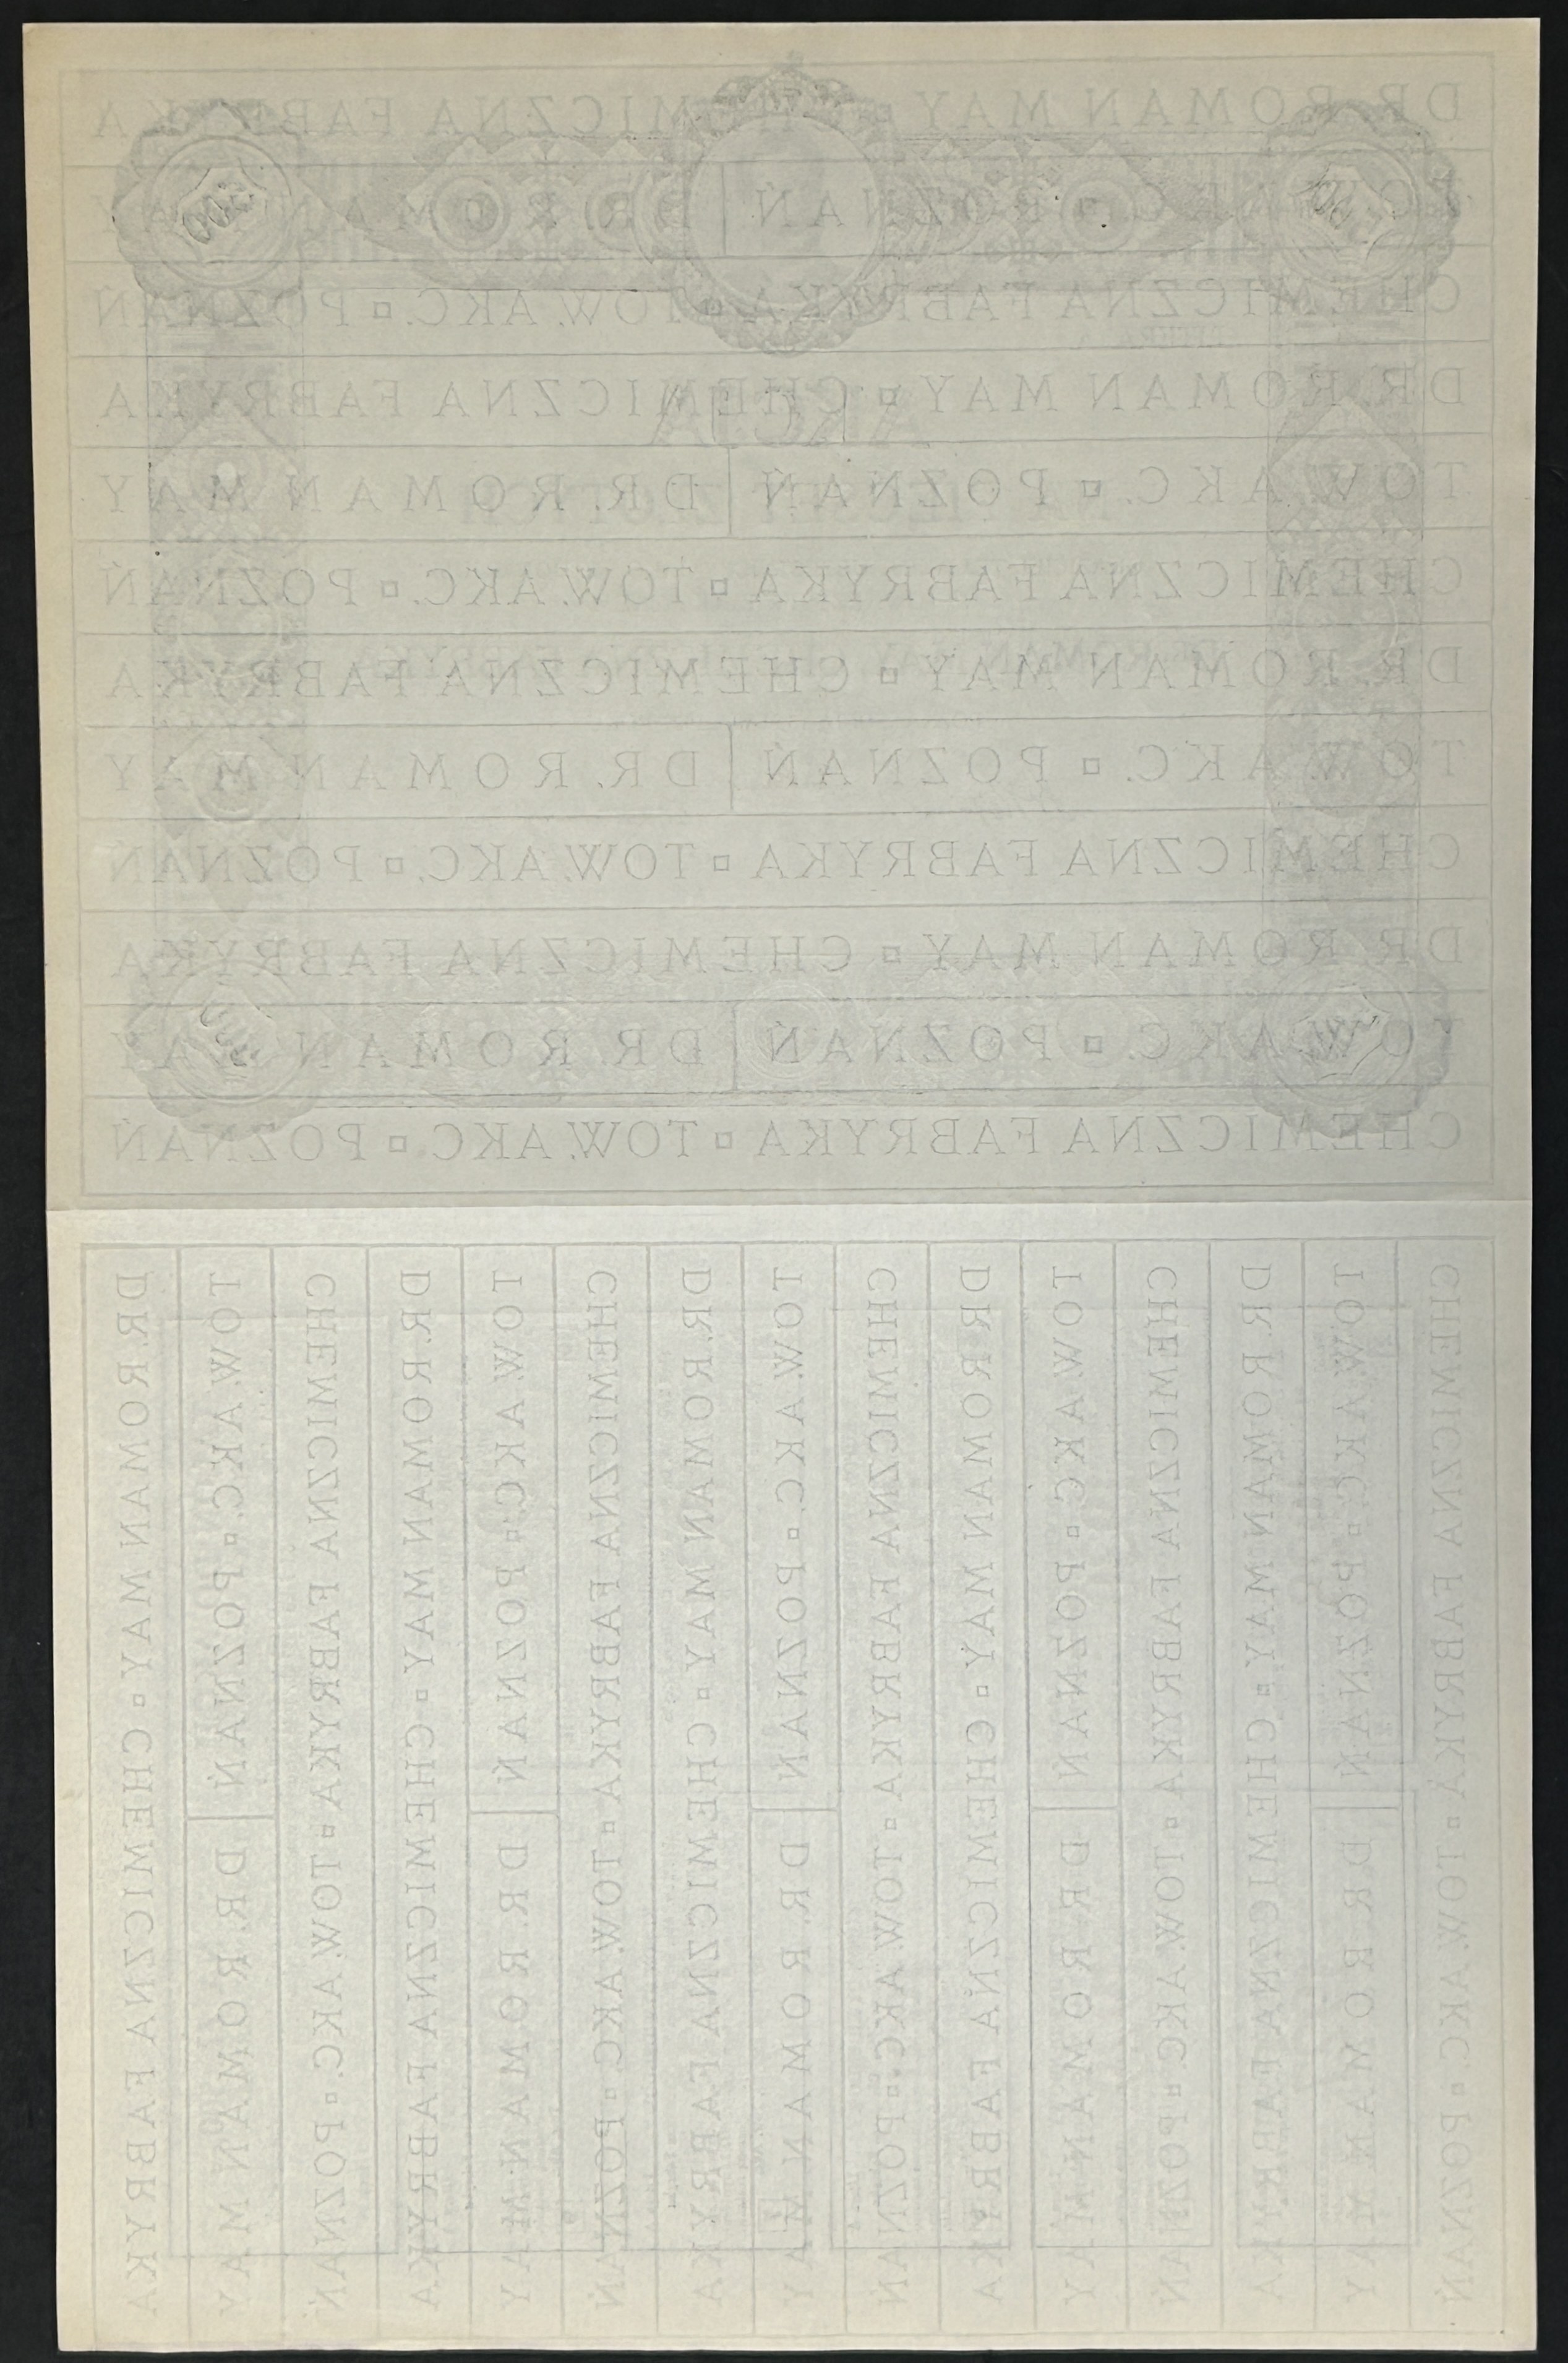 DR. ROMAN MAY ▫ CHEMICZNA FABRYKA
TOW. AKC. ▫ POZNAŃ | DR. ROMAN MAY
CHEMICZNA FABRYKA ▫ TOW. AKC. ▫ POZNAŃ
DR. ROMAN MAY ▫ CHEMICZNA FABRYKA
AKCJA
TOW. AKC. ▫ POZNAŃ | DR. ROMAN MAY
CHEMICZNA FABRYKA ▫ TOW. AKC. ▫ POZNAŃ
DR. ROMAN MAY ▫ CHEMICZNA FABRYKA
TOW. AKC. ▫ POZNAŃ | DR. ROMAN MAY
CHEMICZNA FABRYKA ▫ TOW. AKC. ▫ POZNAŃ
DR. ROMAN MAY ▫ CHEMICZNA FABRYKA
TOW. AKC. ▫ POZNAŃ | DR. ROMAN MAY
CHEMICZNA FABRYKA ▫ TOW. AKC. ▫ POZNAŃ
DR. ROMAN MAY ▫ CHEMICZNA FABRYKA
TOW. AKC. ▫ POZNAŃ | DR. ROMAN MAY
CHEMICZNA FABRYKA ▫ TOW. AKC. ▫ POZNAŃ
DR. ROMAN MAY ▫ CHEMICZNA FABRYKA
TOW. AKC. ▫ POZNAŃ | DR. ROMAN MAY
CHEMICZNA FABRYKA ▫ TOW. AKC. ▫ POZNAŃ
DR. ROMAN MAY ▫ CHEMICZNA FABRYKA
TOW. AKC. ▫ POZNAŃ | DR. ROMAN MAY
CHEMICZNA FABRYKA ▫ TOW. AKC. ▫ POZNAŃ
DR. ROMAN MAY ▫ CHEMICZNA FABRYKA
TOW. AKC. ▫ POZNAŃ | DR. ROMAN MAY
CHEMICZNA FABRYKA ▫ TOW. AKC. ▫ POZNAŃ
DR. ROMAN MAY ▫ CHEMICZNA FABRYKA
TOW. AKC. ▫ POZNAŃ | DR. ROMAN MAY
CHEMICZNA FABRYKA ▫ TOW. AKC. ▫ POZNAŃ